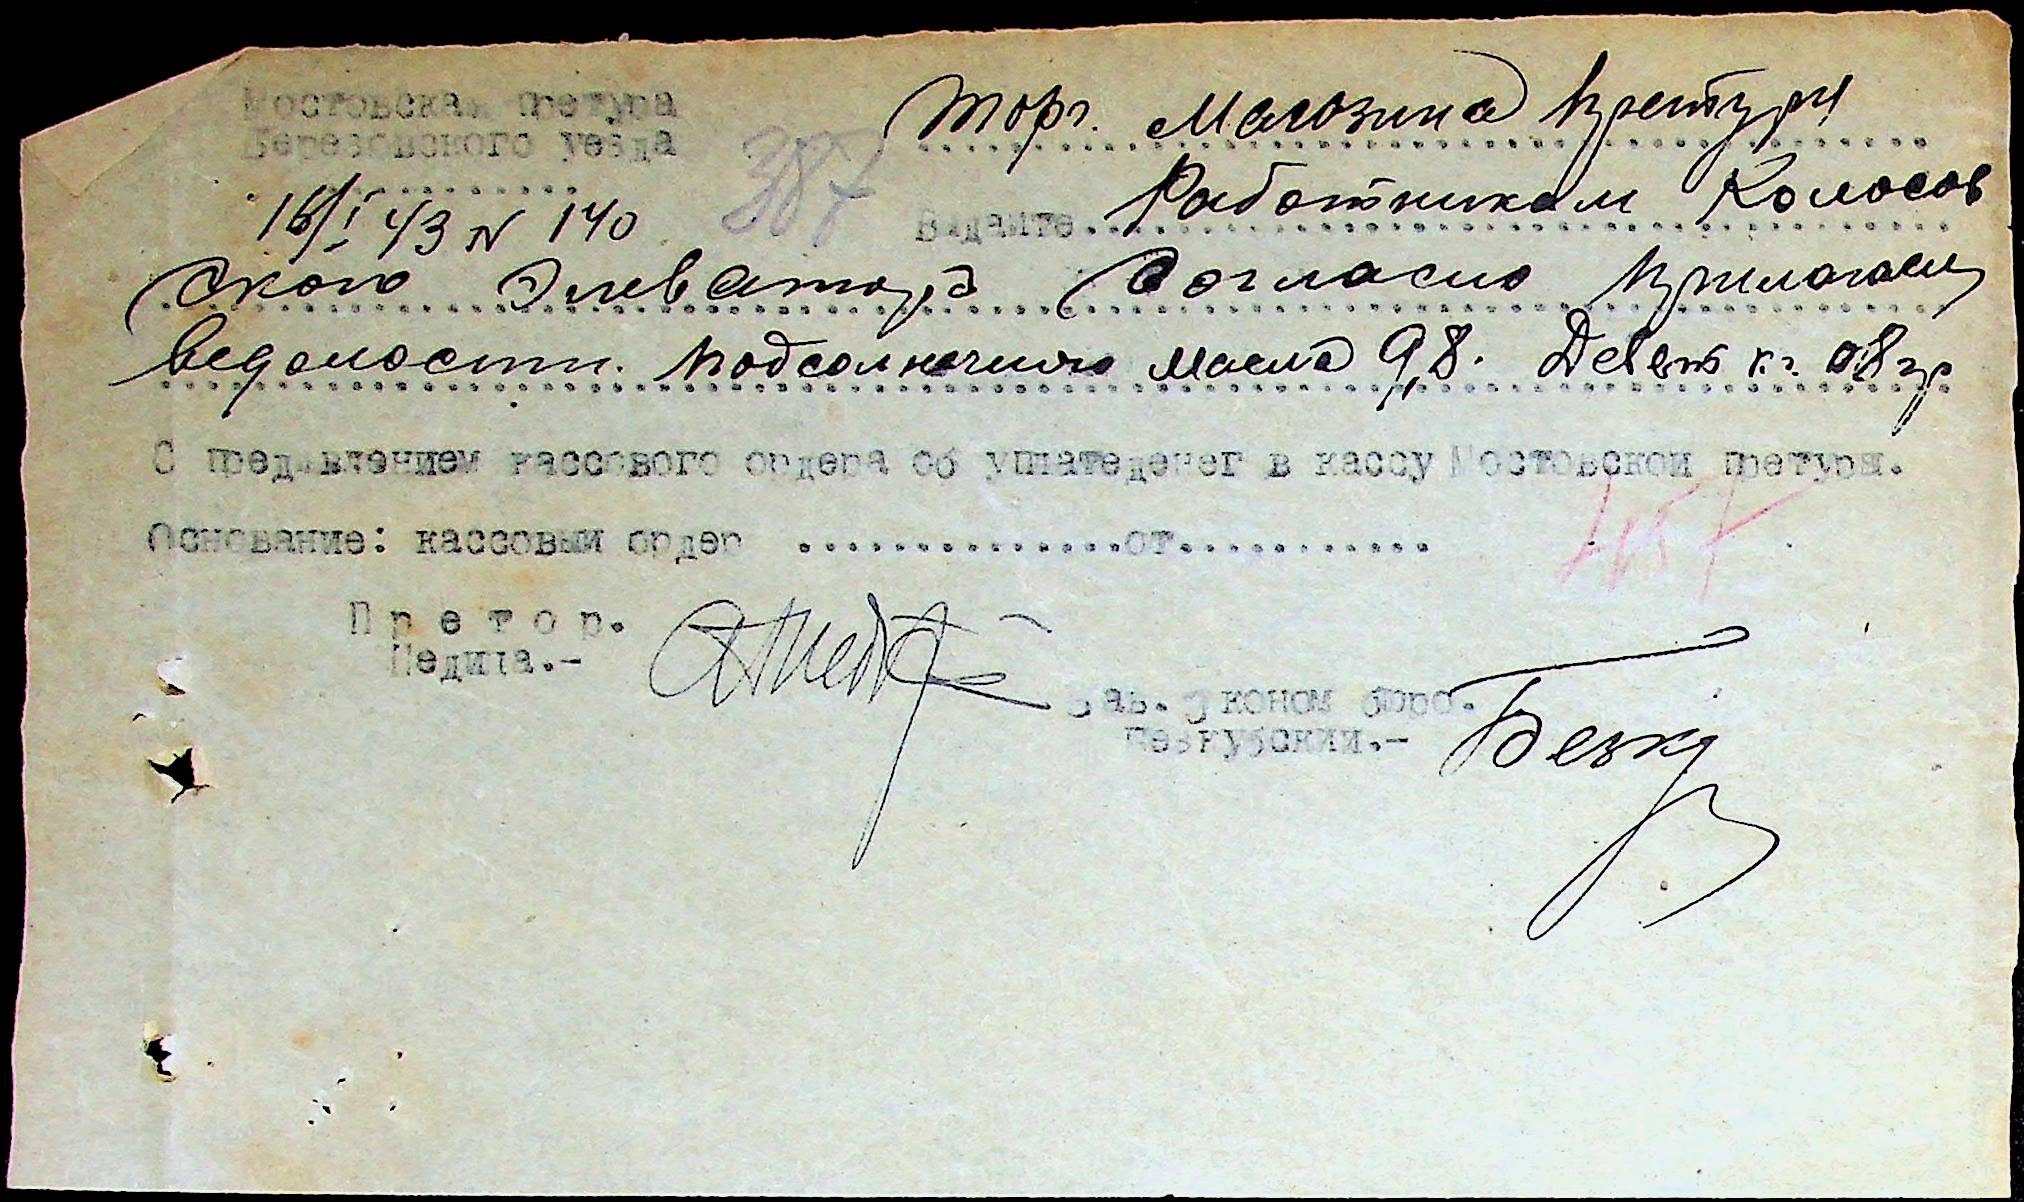 Мостовская претура
Березовского уезда
387
Торг. Магозина Претури
16/I 43 N 140
Видайте Работникам Колосов
ского Элеватора Согласно Прилогаем
Ведомости. Подсолнечного Масла 9,8. Девет к.г. 08 гр
С предявлением кассового ордера об уплатеденег в кассу Мостовской претуры.
Основание: кассовый ордер ...............от............
Претор.
Педица.-
Зав. Эконом бюро.
Безкубский.-
Безку